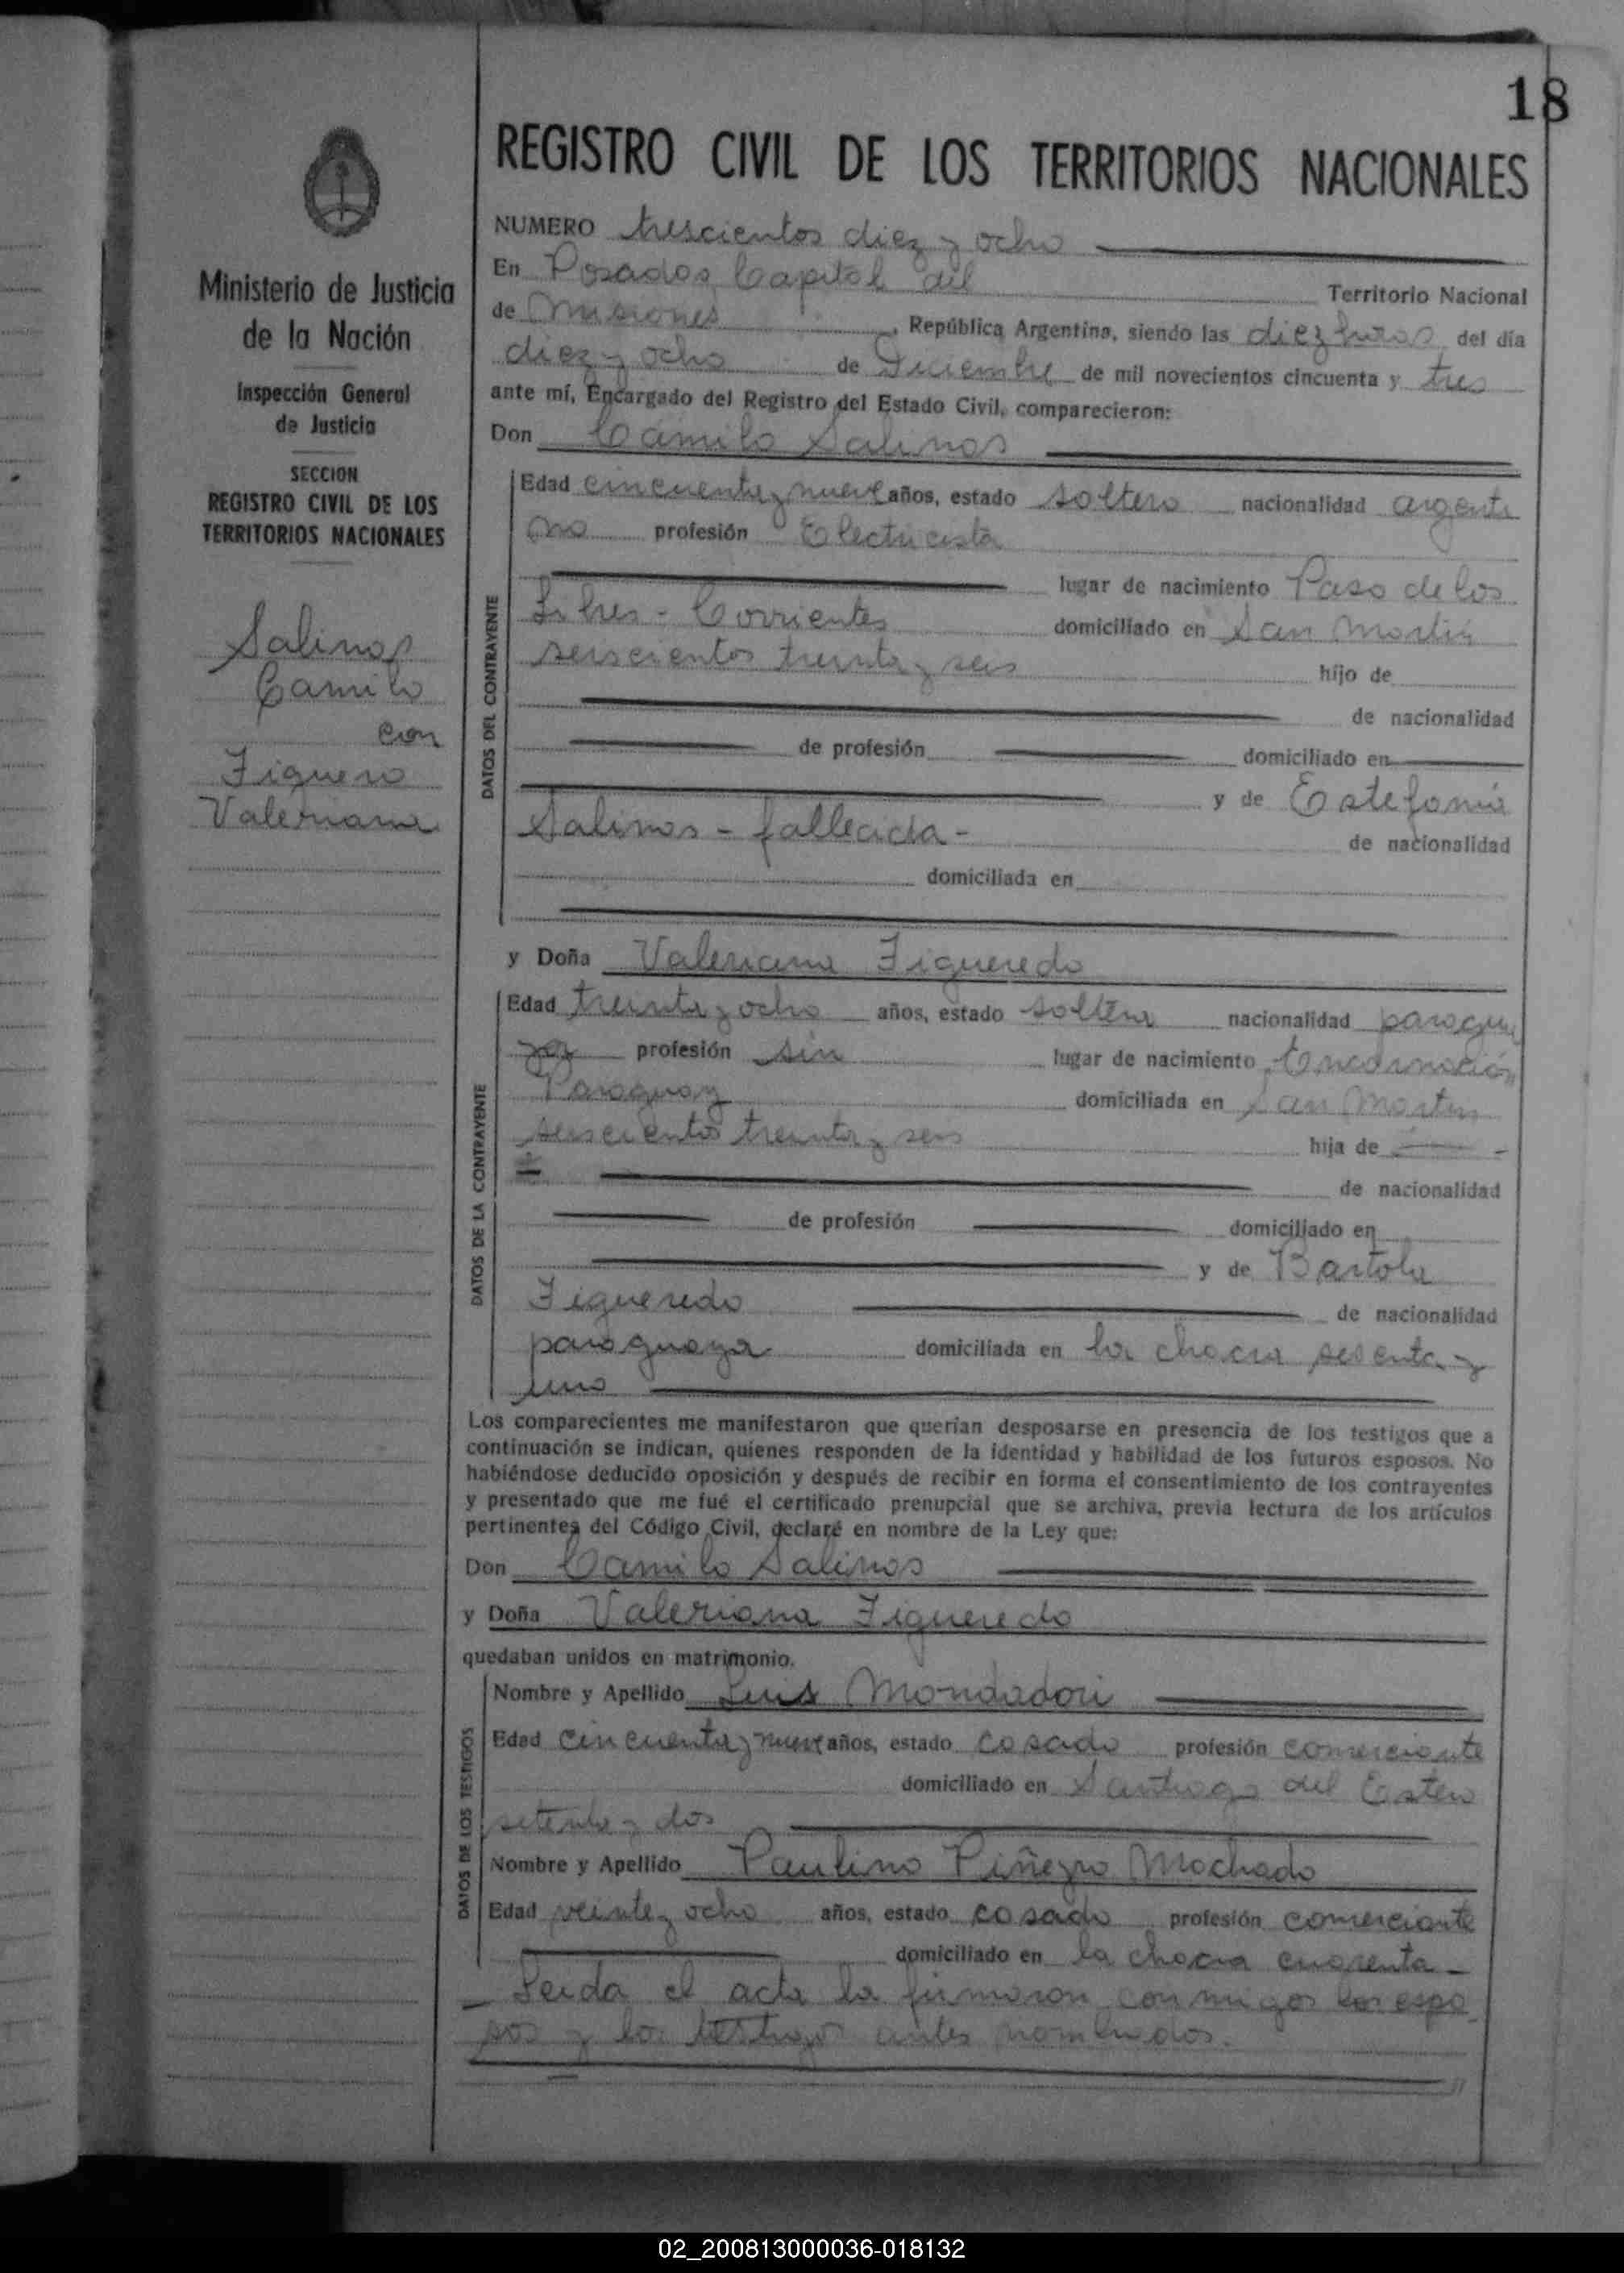 18
REGISTRO CIVIL DE LOS TERRITORIOS NACIONALES
Ministerio de Justicia
de la Nación
Inspección General
de Justicia
SECCION
REGISTRO CIVIL DE LOS
TERRITORIOS NACIONALES
Salinas
Camilo
con
Figuero
Valeriana
NUMERO trescientos diez y ocho
En Posadas Capital del Territorio Nacional
de Misiones, República Argentina, siendo las diez horas del día
diez y ocho de Diciembre de mil novecientos cincuenta y tres
ante mí, Encargado del Registro del Estado Civil, comparecieron:
Don Camilo Salinas
DATOS DEL CONTRAYENTE
Edad cincuenta y nueve años, estado soltero nacionalidad argenti
no profesión Electricista
lugar de nacimiento Paso de los
Libres - Corrientes domiciliado en San Martin
seiscientos treinta y seis hijo de
de nacionalidad
de profesión domiciliado en
y de Estefania
Salinas - fallecida - de nacionalidad
domiciliada en
y Doña Valeriana Figueredo
DATOS DE LA CONTRAYENTE
Edad treinta y ocho años, estado soltera nacionalidad paragua
ya profesión sin lugar de nacimiento Encarnación
Paraguay domiciliada en San Martin
seiscientos treinta y seis hija de
de nacionalidad
de profesión domiciliado en
y de Bartola
Figueredo de nacionalidad
paraguaya domiciliada en la chacra sesenta y
uno
Los comparecientes me manifestaron que querían desposarse en presencia de los testigos que a
continuación se indican, quienes responden de la identidad y habilidad de los futuros esposos. No
habiéndose deducido oposición y después de recibir en forma el consentimiento de los contrayentes
y presentado que me fué el certificado prenupcial que se archiva, previa lectura de los artículos
pertinentes del Código Civil, declaré en nombre de la Ley que:
Don Camilo Salinas
y Doña Valeriana Figueredo
quedaban unidos en matrimonio.
DATOS DE LOS TESTIGOS
Nombre y Apellido Luis Mondadori
Edad cincuenta y nueve años, estado casado profesión comerciante
domiciliado en Santiago del Estero
setenta y dos
Nombre y Apellido Paulino Piñeyro Machado
Edad veinte y ocho años, estado casado profesión comerciante
domiciliado en la chacra cuarenta -
- Leida el acta la firmaron conmigo los espo
sos y los testigos antes nombrados.
02_200813000036-018132